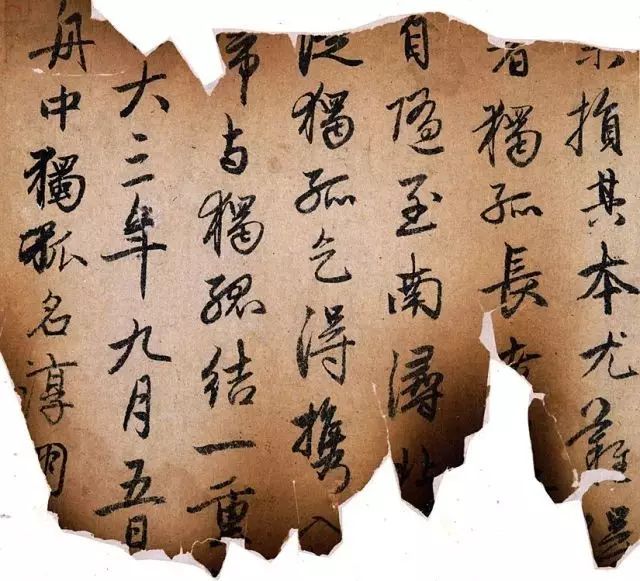 損其本尤難得
者獨孤長
自随至南潯北
從獨孤乞得攜入
与獨孤結一重
大三年九月五日
舟中獨孤名淳朋